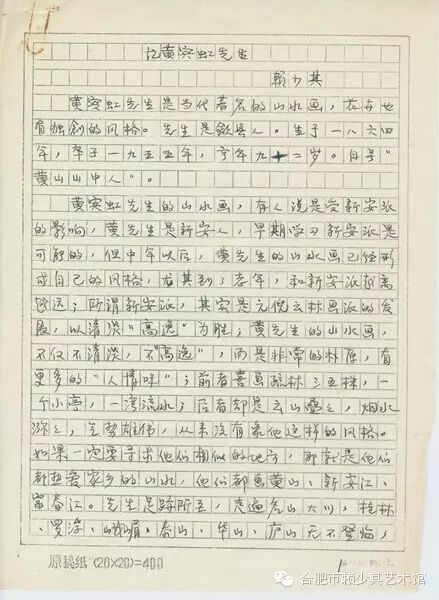 忆黄宾虹先生
赖少其
黄宾虹先生是当代著名的山水画，花卉也
有独创的风格。先生是歙县人。生于一八六四
年，卒于一九五五年，享年九十二岁。自号“
黄山山中人”。
黄宾虹先生的山水画，有人说是受新安派
的影响，黄先生是新安人，早期学习新安派是
可能的，但中年以后，黄先生的山水画已经形
成自己的风格，尤其到老年，和新安派越离
越远；所谓新安派，其实是元倪云林画派的发
展，以清淡“高逸”为胜；黄先生的山水画，
不仅不清淡，不“高逸”，而是非常的朴厚，有
更多的“人情味”；前者喜画疏林三五株，一
个小亭，一湾流水；后者却是云山叠々，烟水
弥々，气势雄伟，从来没有象他这样的风格。
如果一定要寻求他们相似的地方，那就是他们
都热爱家乡的山水，他们都画黄山、新安江、
富春江。先生足迹所至，走遍名山大川，桂林
、罗浮、峨嵋、泰山、华山、庐山无不登临，
原稿纸（20×20）＝400
合肥市赖少其艺术馆